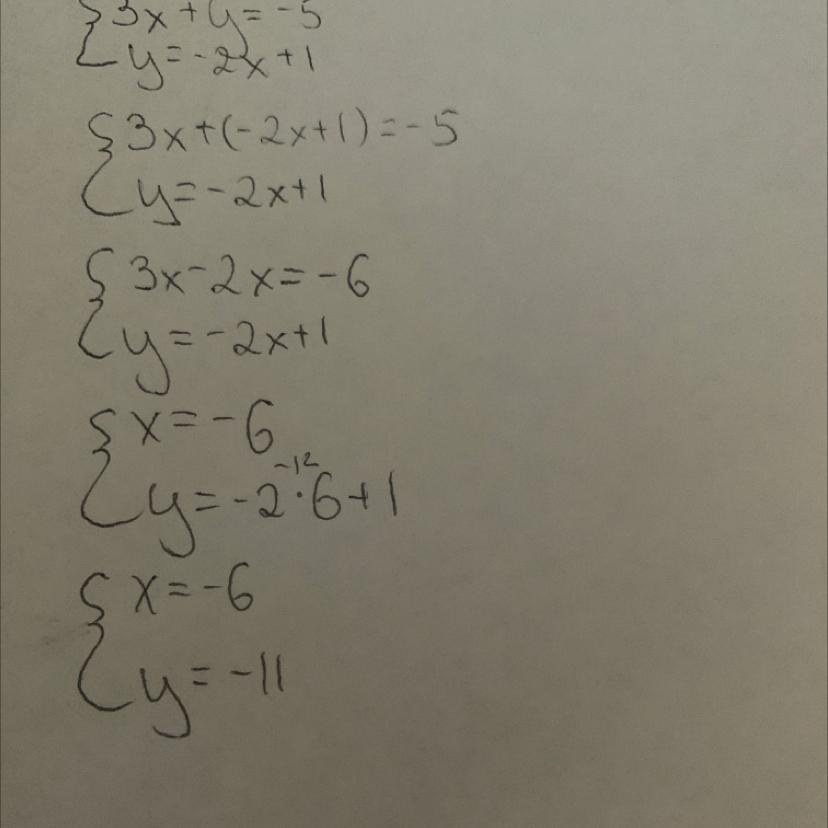 3x+y=-5
y=-2x+1
3x+(-2x+1)=-5
y=-2x+1
3x-2x=-6
y=-2x+1
x=-6
-12
y=-2·6+1
x=-6
y=-11